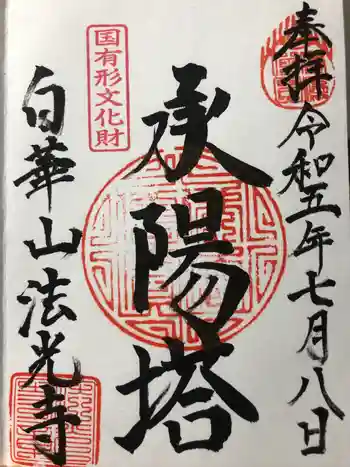 奉拝
令和五年七月八日
承陽塔
国有形文化財
白華山法光寺